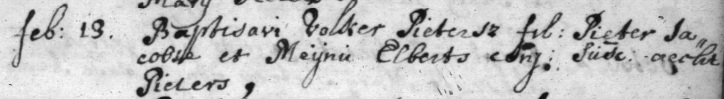 feb: 13. Baptisavi Volker Pietersz fil: Pieter Ja„
cobse et Meijnu Elberts conj: Susc: aecht
Pieters,